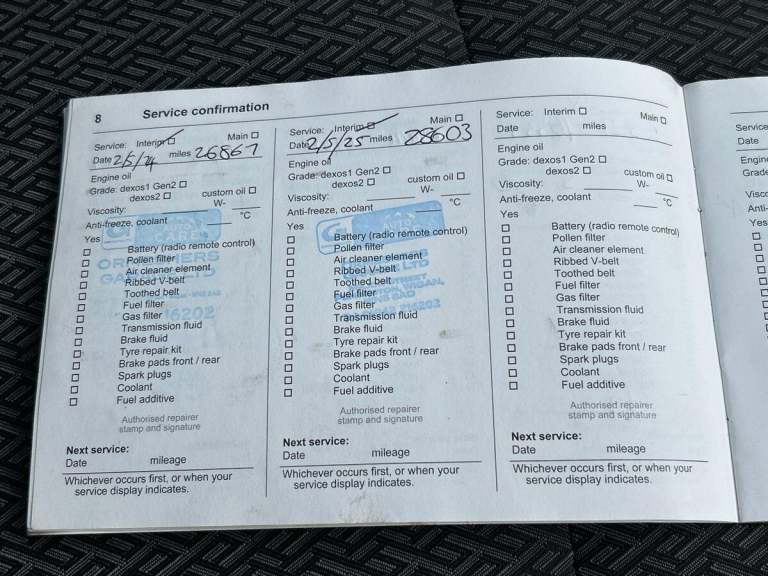 8 Service confirmation
Service: Interim ☐ Main ☐
Date 2/5/24 miles 26867
Engine oil
Grade: dexos1 Gen2 ☐
dexos2 ☐ custom oil ☐
Viscosity: W-
Anti-freeze, coolant °C
Yes
☐ Battery (radio remote control)
☐ Pollen filter
☐ Air cleaner element
☐ Ribbed V-belt
☐ Toothed belt
☐ Fuel filter
☐ Gas filter
☐ Transmission fluid
☐ Brake fluid
☐ Tyre repair kit
☐ Brake pads front / rear
☐ Spark plugs
☐ Coolant
☐ Fuel additive
Authorised repairer
stamp and signature
Next service:
Date mileage
Whichever occurs first, or when your
service display indicates.
Service: Interim ☐ Main ☐
Date 2/5/25 miles 28603
Engine oil
Grade: dexos1 Gen2 ☐
dexos2 ☐ custom oil ☐
Viscosity: W-
Anti-freeze, coolant °C
Yes
AUTO
☐ Battery (radio remote control)
☐ Pollen filter
☐ Air cleaner element
☐ Ribbed V-belt
☐ Toothed belt
☐ Fuel filter
☐ Gas filter
☐ Transmission fluid
☐ Brake fluid
☐ Tyre repair kit
☐ Brake pads front / rear
☐ Spark plugs
☐ Coolant
☐ Fuel additive
Authorised repairer
stamp and signature
Next service:
Date mileage
Whichever occurs first, or when your
service display indicates.
Service: Interim ☐ Main ☐
Date miles
Engine oil
Grade: dexos1 Gen2 ☐
dexos2 ☐ custom oil ☐
Viscosity: W-
Anti-freeze, coolant °C
Yes
☐ Battery (radio remote control)
☐ Pollen filter
☐ Air cleaner element
☐ Ribbed V-belt
☐ Toothed belt
☐ Fuel filter
☐ Gas filter
☐ Transmission fluid
☐ Brake fluid
☐ Tyre repair kit
☐ Brake pads front / rear
☐ Spark plugs
☐ Coolant
☐ Fuel additive
Authorised repairer
stamp and signature
Next service:
Date mileage
Whichever occurs first, or when your
service display indicates.
Service
Date